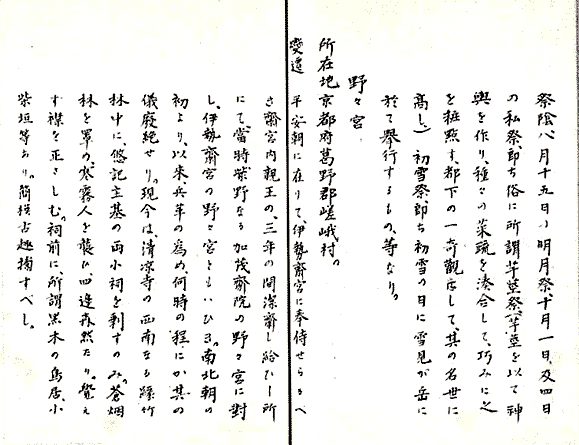 祭陰八月十五日、小明月祭、十月一日、及四日
の私祭、即ち俗に所謂芋莖祭、芋莖を以て神
輿を作り、種々の菜蔬を湊合して、巧みに之
を粧點す、都下の一奇觀として、其の名世に
高し、)初雪祭、即ち初雪の日に雪見が岳に
於て擧行するもの、等なり。
野々宮
所在地 京都府葛野郡嵯峨村。
變遷 平安朝に在りて、伊勢齋宮に奉侍せらるべ
き齋宮内親王の、三年の間潔齋し給ひし所
にて、當時紫野なる加茂齋院の野々宮に對
し、伊勢齋宮の野々宮ともいひヨ。南北朝の
初より、以來、兵革の爲め、何時の程にか其の
儀廢絶せり。現今は、清凉寺の西南なる籔竹
林中に悠記主基の両小祠を剰すのみ。蒼烟
林を罩め、寒露人を襲ひ、四邊森然たり。覺え
ず襟を正さしむ。祠前に、所謂黑木の鳥居、小
柴垣等あり。簡樸古趣掬すべし。